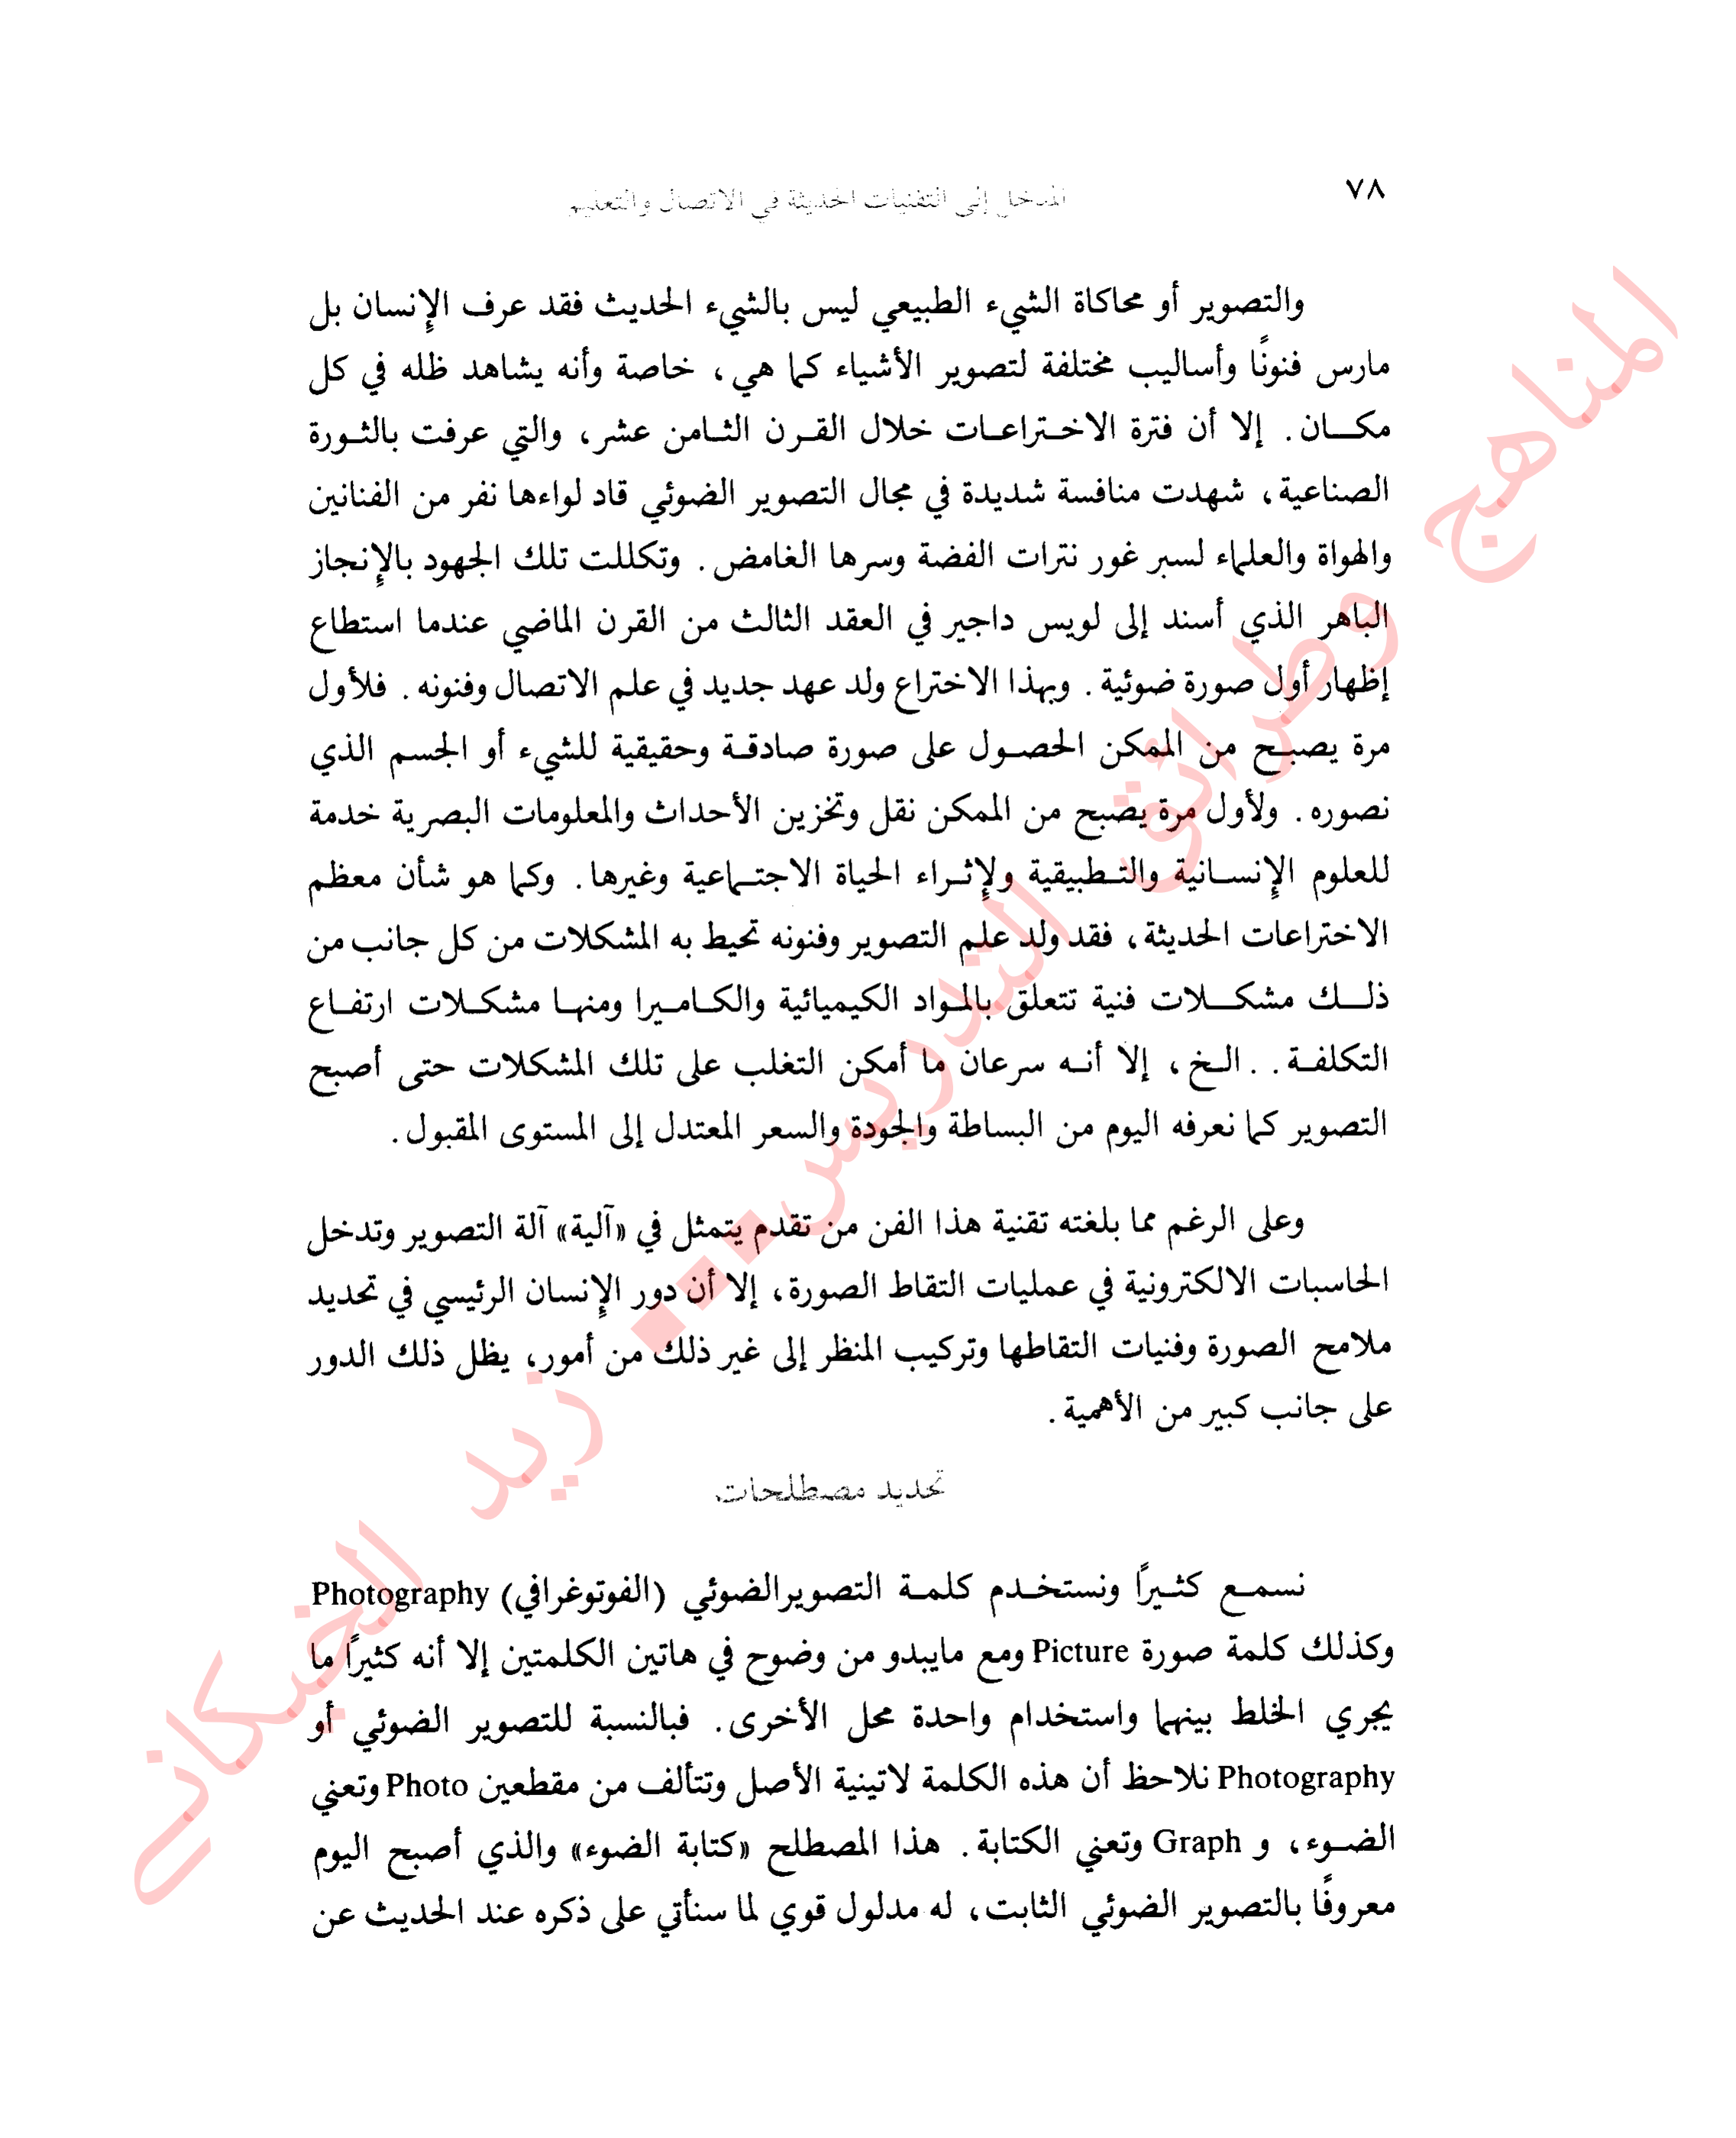 ٧٨
المدخل إلى التقنيات الحديثة في الاتصال والتعليم
والتصوير أو محاكاة الشيء الطبيعي ليس بالشيء الحديث فقد عرف الإنسان بل
مارس فنونًا وأساليب مختلفة لتصوير الأشياء كما هي، خاصة وأنه يشاهد ظله في كل
مكان. إلا أن فترة الاختراعات خلال القرن الثامن عشر، والتي عرفت بالثورة
الصناعية، شهدت منافسة شديدة في مجال التصوير الضوئي قاد لواءها نفر من الفنانين
والهواة والعلماء لسبر غور نترات الفضة وسرها الغامض. وتكللت تلك الجهود بالإنجاز
الباهر الذي أسند إلى لويس داجير في العقد الثالث من القرن الماضي عندما استطاع
إظهار أول صورة ضوئية. وبهذا الاختراع ولد عهد جديد في علم الاتصال وفنونه. فلأول
مرة يصبح من الممكن الحصول على صورة صادقة وحقيقية للشيء أو الجسم الذي
نصوره. ولأول مرة يصبح من الممكن نقل وتخزين الأحداث والمعلومات البصرية خدمة
للعلوم الإنسانية والتطبيقية ولإثراء الحياة الاجتماعية وغيرها. وكما هو شأن معظم
الاختراعات الحديثة، فقد ولد علم التصوير وفنونه تحيط به المشكلات من كل جانب من
ذلك مشكلات فنية تتعلق بالمواد الكيميائية والكاميرا ومنها مشكلات ارتفاع
التكلفة.. الخ، إلا أنه سرعان ما أمكن التغلب على تلك المشكلات حتى أصبح
التصوير كما نعرفه اليوم من البساطة والجودة والسعر المعتدل إلى المستوى المقبول.
وعلى الرغم مما بلغته تقنية هذا الفن من تقدم يتمثل في «آلية» آلة التصوير وتدخل
الحاسبات الالكترونية في عمليات التقاط الصورة، إلا أن دور الإنسان الرئيسي في تحديد
ملامح الصورة وفنيات التقاطها وتركيب المنظر إلى غير ذلك من أمور، يظل ذلك الدور
على جانب كبير من الأهمية.
تحديد مصطلحات
نسمع كثيرًا ونستخدم كلمة التصويرالضوئي (الفوتوغرافي) Photography
وكذلك كلمة صورة Picture ومع مايبدو من وضوح في هاتين الكلمتين إلا أنه كثيرًا ما
يجري الخلط بينهما واستخدام واحدة محل الأخرى. فبالنسبة للتصوير الضوئي أو
Photography نلاحظ أن هذه الكلمة لاتينية الأصل وتتألف من مقطعين Photo وتعني
الضوء، و Graph وتعني الكتابة. هذا المصطلح «كتابة الضوء» والذي أصبح اليوم
معروفًا بالتصوير الضوئي الثابت، له مدلول قوي لما سنأتي على ذكره عند الحديث عن
المناهج وطرائق التدريس... زيد الخيكاني